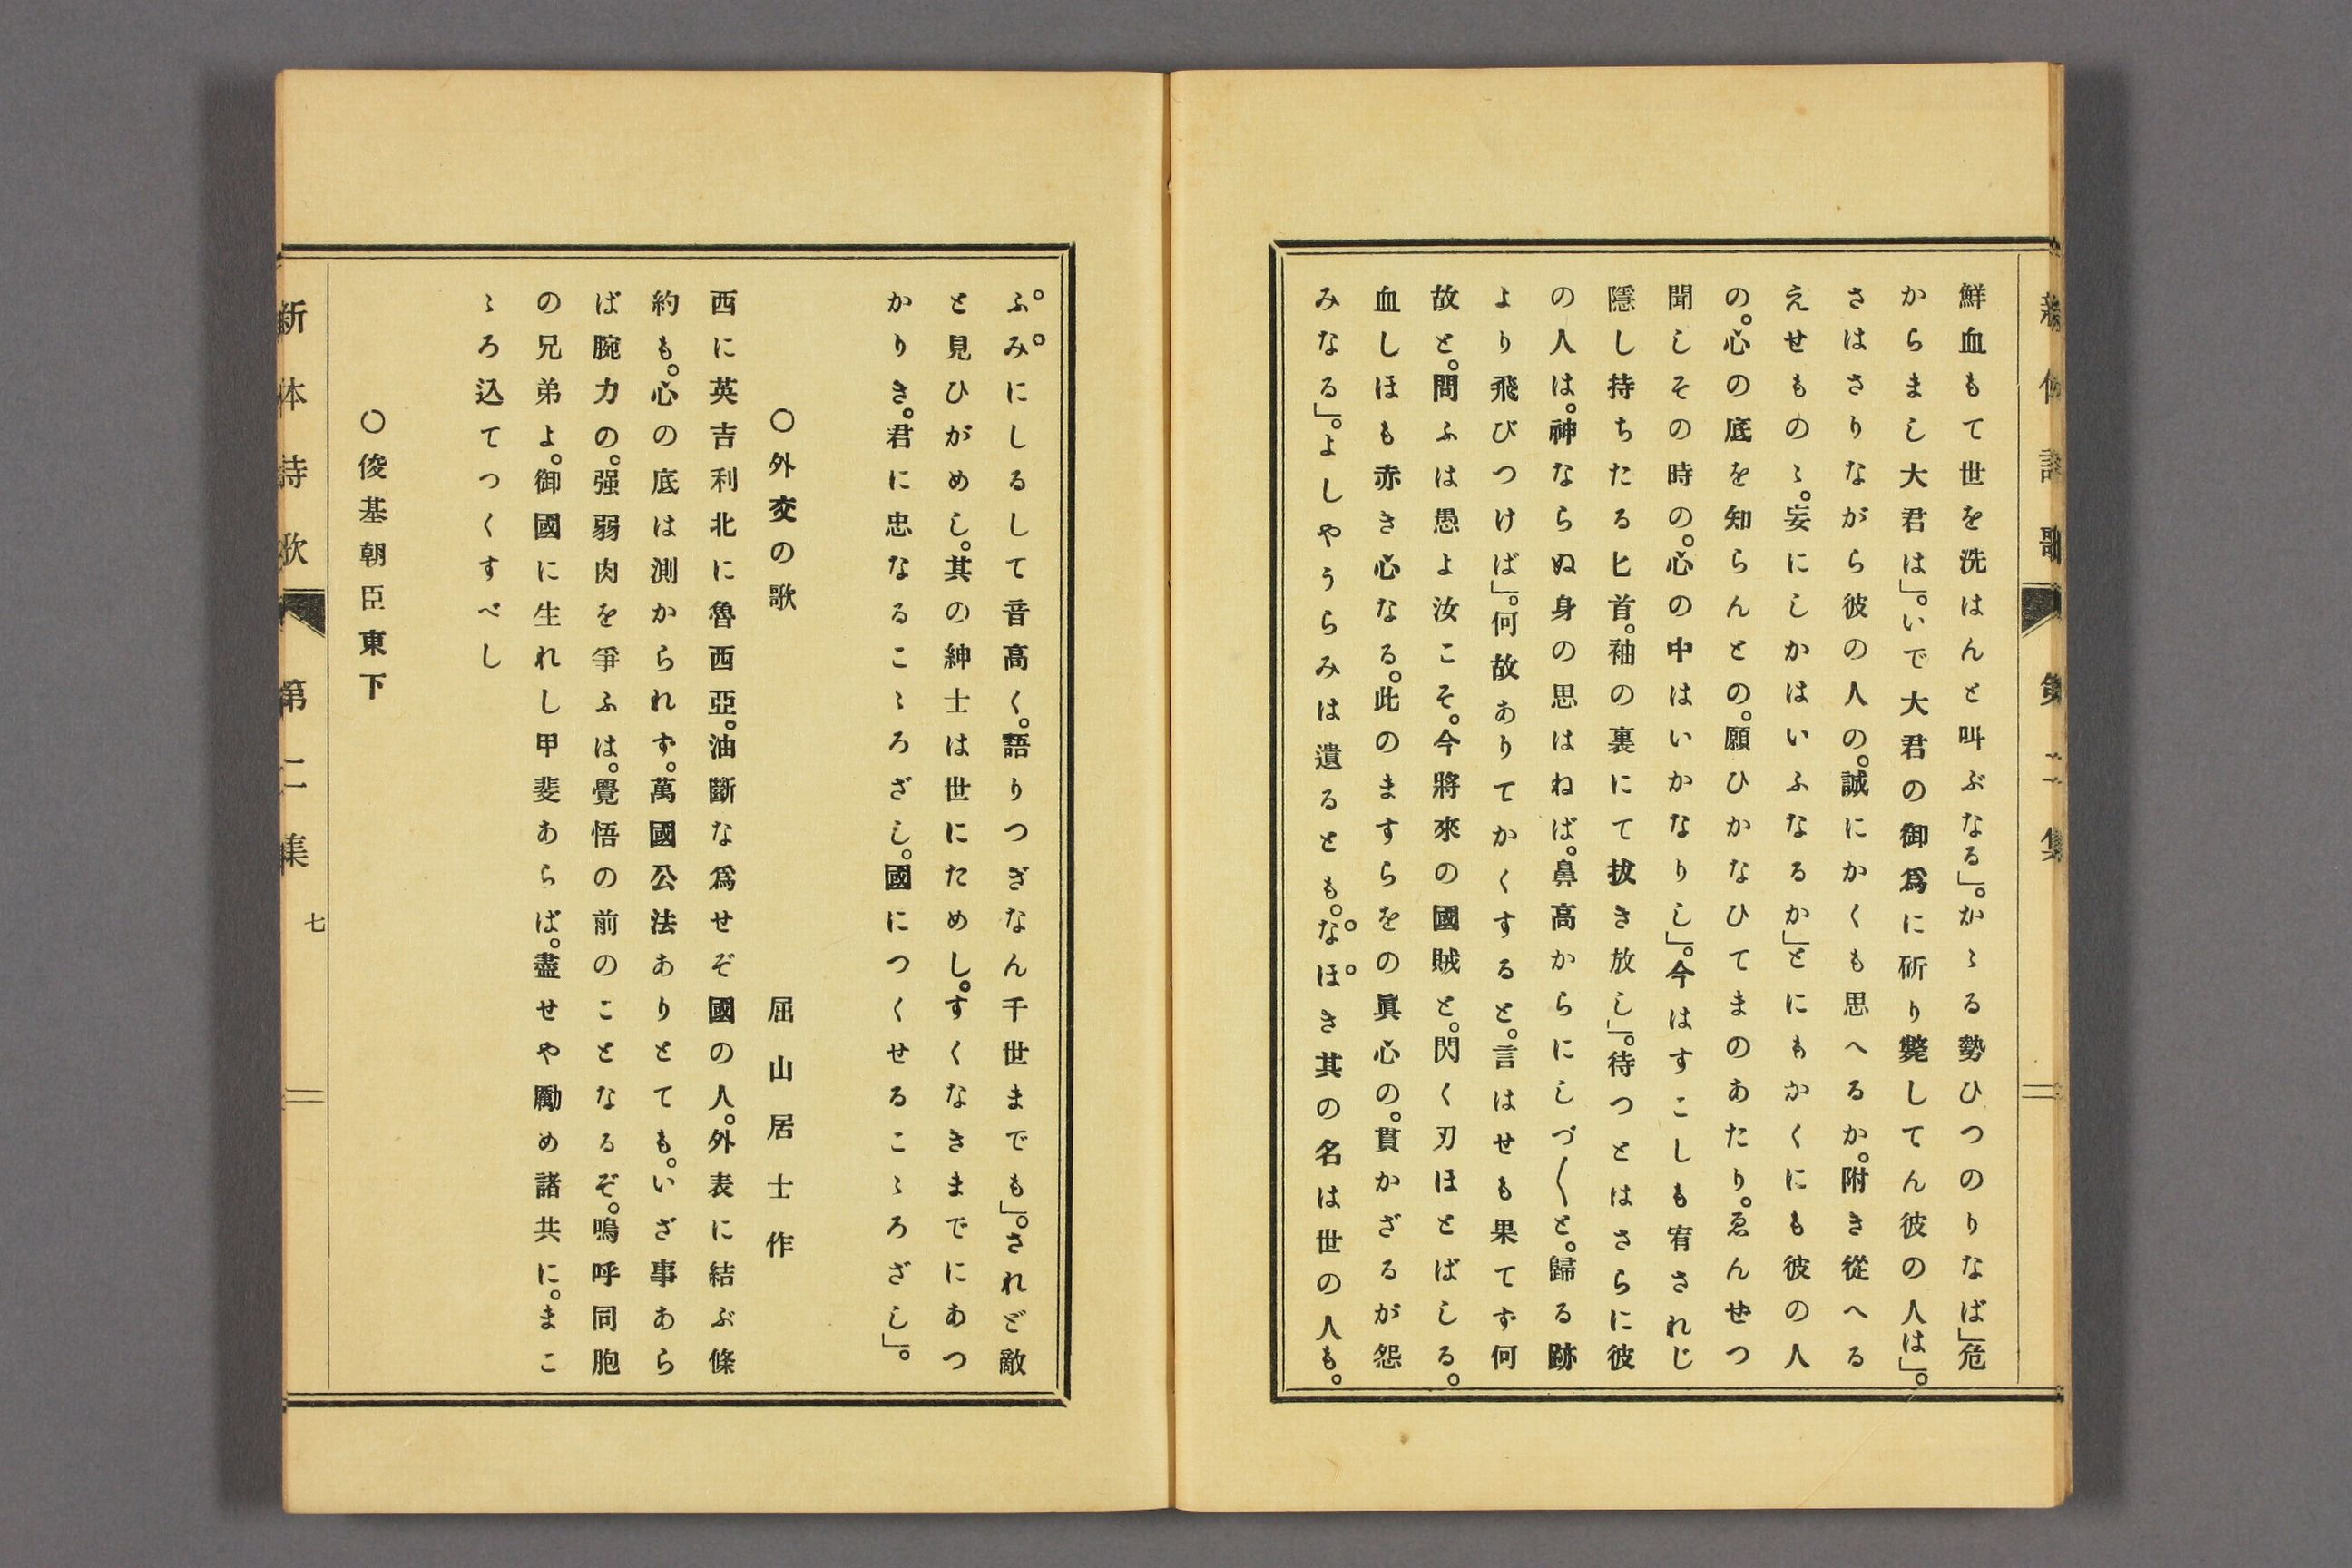 新体詩歌 第二集
鮮血もて世を洗はんと叫ぶなる」。かゝる勢ひつのりなば」危
からまし大君は」。いで大君の御爲に斫り斃してん彼の人は」。
さはさりながら彼の人の。誠にかくも思へるか。附き從へる
えせものゝ。妄にしかはいふなるか」とにもかくにも彼の人
の。心の底を知らんとの。願ひかなひてまのあたり。ゑんぜつ
聞しその時の。心の中はいかなりし」。今はすこしも宥されじ
隱し持ちたる匕首。袖の裏にて拔き放し」。待つとはさらに彼
の人は。神ならぬ身の思はねば。鼻高からにしづ〱と。歸る跡
より飛びつけば」。何故ありてかくすると。言はせも果てず何
故と。問ふは愚よ汝こそ。今將來の國賊と。閃く刃ほとばしる。
血しほも赤き心なる。此のますらをの眞心の。貫かざるが怨
みなる」。よしやうらみは遺るとも。なほき其の名は世の人も。
ふみにしるして音高く。語りつぎなん千世までも」。されど敵
と見ひがめし。其の紳士は世にためし。すくなきまでにあつ
かりき。君に忠なるこゝろざし。國につくせるこゝろざし」。
○外交の歌
屈山居士作
西に英吉利北に魯西亞。油斷な爲せぞ國の人。外表に結ぶ條
約も。心の底は測かられず。萬國公法ありとても。いざ事あら
ば腕力の。强弱肉を爭ふは。覺悟の前のことなるぞ。嗚呼同胞
の兄弟よ。御國に生れし甲斐あらば。盡せや勵め諸共に。まこ
ゝろ込てつくすべし
○俊基朝臣東下
新体詩歌 第二集 七